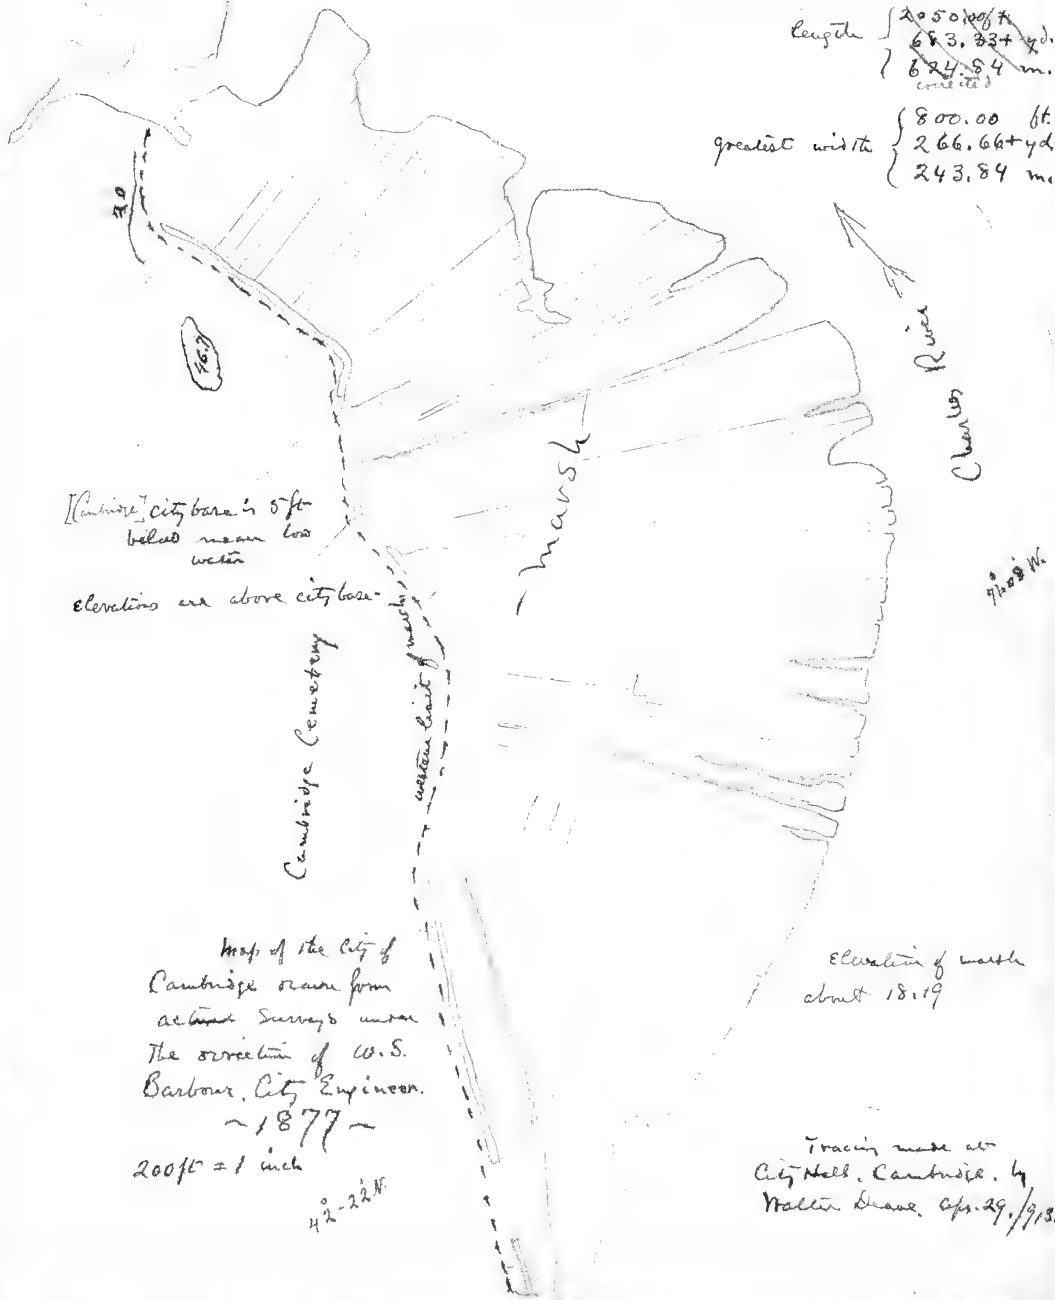 Length { 2050.00 ft.
683.33+ yd.
624.84 m.
corrected
greatest width { 800.00 ft.
266.66+ yd.
243.84 m.
20
46.9
Charles River
Marsh
[Cambridge] city base is 5 ft
below mean low
water
Elevations are above city base-
western limit of marsh
Cambridge Cemetery
71° 08' W.
Map of the City of
Cambridge drawn from
actual Surveys under
the direction of W.S.
Barbour, City Engineer.
~1877~
200 ft = 1 inch
42°-22' N.
Elevation of marsh
about 18.19
Tracing made at
City Hall, Cambridge, by
Walter Deane, Apr. 29, 1913.